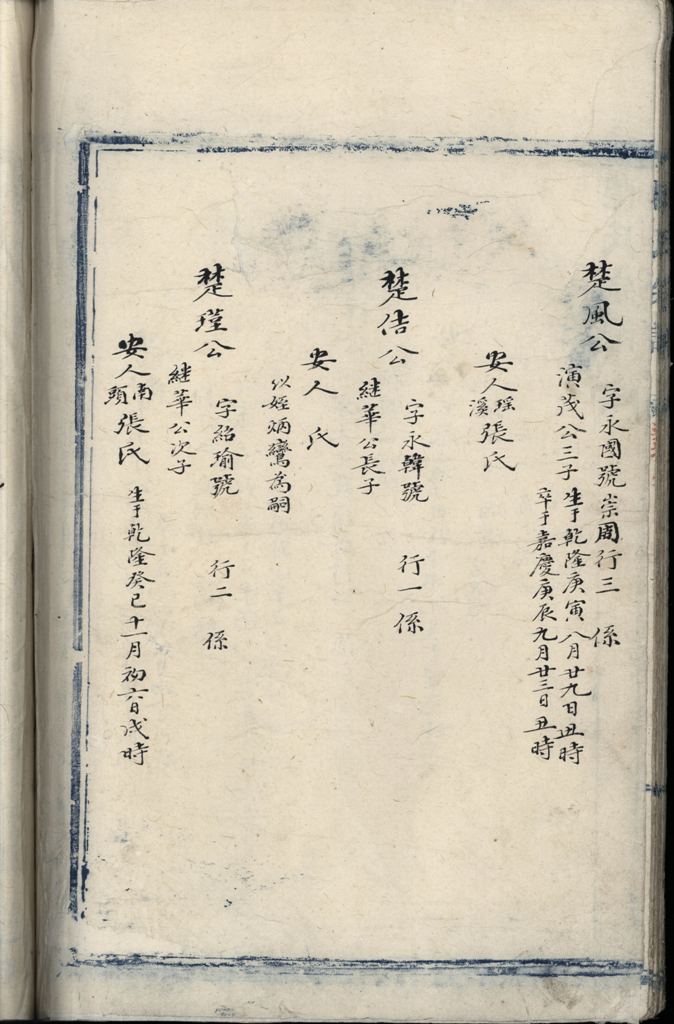 楚風公
字永國號崇周行三 係
演茂公三子
生于乾隆庚寅八月廿九日丑時
卒于嘉慶庚辰九月廿三日丑時
安人瑶溪張氏
楚佶公
字永韓號 行一 係
継華公長子
安人 氏
以姪炳鸞為嗣
楚瑾公
字紹瑜號 行二 係
継華公次子
安人南頭張氏
生于乾隆癸巳十一月初六日戌時